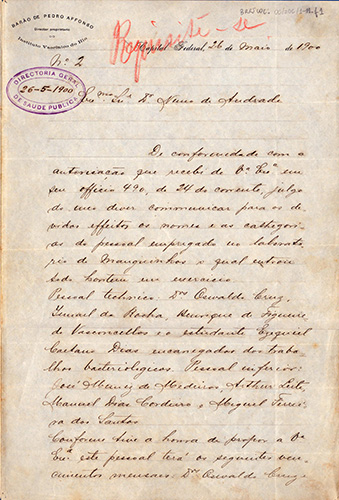 BARÃO DE PEDRO AFFONSO
Director proprietario
Instituto Vaccinico do Rio
Requisite-se
Capital Federal, 26 de Maio de 1900
Nº 2
DIRECTORIA GERAL
26-5-1900
DE SAUDE PUBLICA
Exmo. Sr. Dr. Nuno de Andrade
De conformidade com a
autorisação que recebi de Vª Exª em
seu officio 490, de 24 do corrente, julgo
do meu dever communicar para os de-
vidos effeitos os nomes e as cathego-
rias do pessoal empregado no laborato-
rio de Manguinhos o qual entrou
desde hontem em exercicio.
Pessoal technico: Drs Oswaldo Cruz,
Ismael da Rocha, Henrique de Figueire-
do Vasconcellos e o estudante Ezequiel
Caetano Dias encarregados dos traba-
lhos bacteriologicos. Pessoal inferior:
José Muniz de Medeiros, Arthur Leite,
Manuel Dias Cordeiro e Miguel Ferrei-
ra dos Santos
Conforme tive a honra de propor a Vª
Exª este pessoal terá os seguintes ven-
cimentos mensaes: Drs Oswaldo Cruz